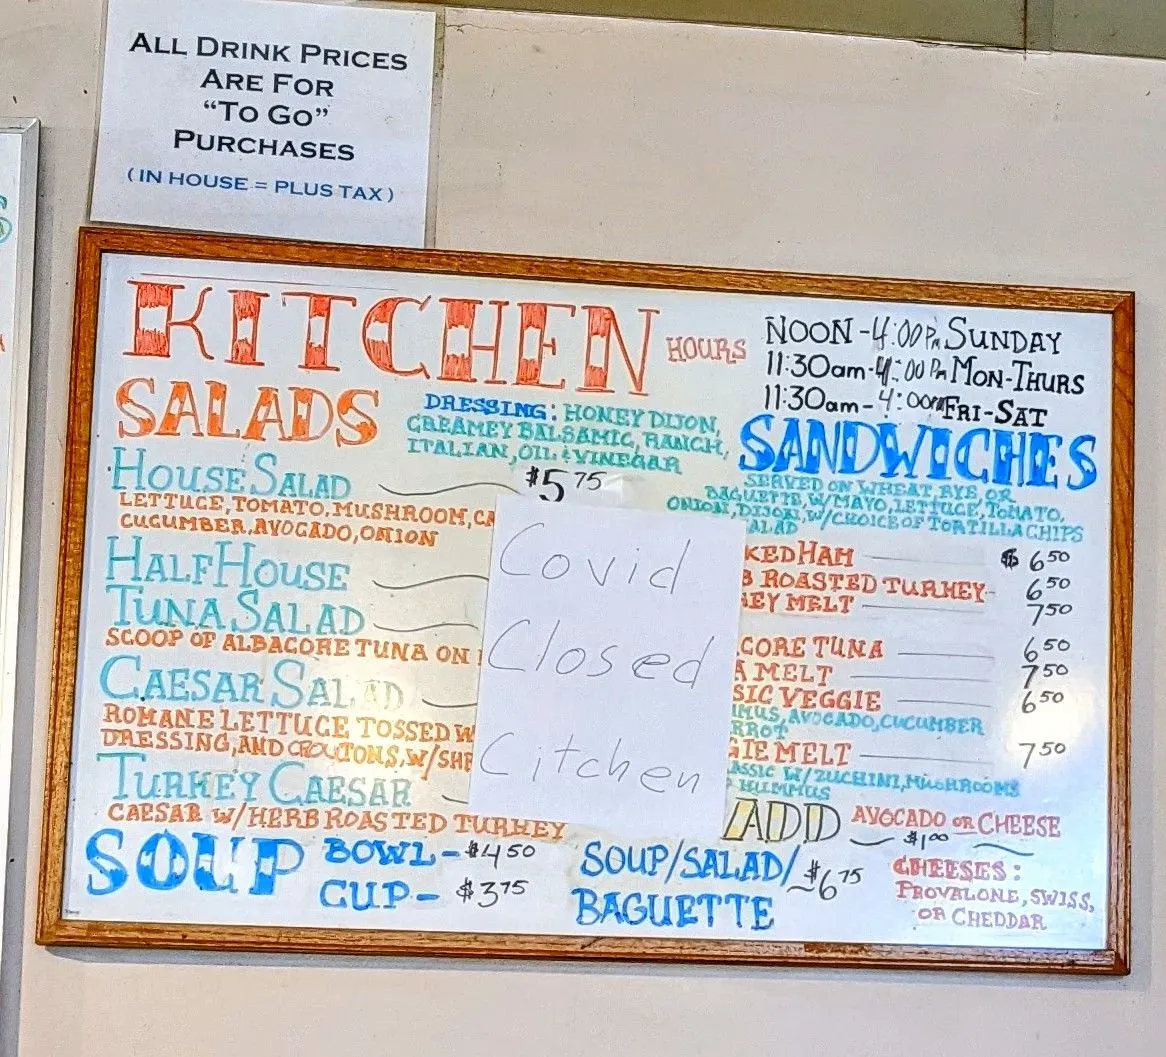 ALL DRINK PRICES
ARE FOR
"TO GO"
PURCHASES
( IN HOUSE = PLUS TAX )
KITCHEN
HOURS
NOON - 4:00 Pm SUNDAY
11:30am - 4:00 Pm MON-THURS
11:30am - 4:00pm FRI-SAT
SALADS
DRESSING: HONEY DIJON,
CREAMEY BALSAMIC, RANCH,
ITALIAN, OIL & VINEGAR
HOUSE SALAD $5 75
LETTUCE, TOMATO, MUSHROOM, CA
CUCUMBER, AVOCADO, ONION
HALF HOUSE
TUNA SALAD
SCOOP OF ALBACORE TUNA ON
CAESAR SALAD
ROMANE LETTUCE TOSSED W
DRESSING, AND CROUTONS, W/SHR
TURKEY CAESAR
CAESAR W/HERB ROASTED TURKEY
Covid
Closed
Citchen
SANDWICHES
SERVED ON WHEAT, RYE, OR
BAGUETTE, W/MAYO, LETTUCE, TOMATO,
ONION, DIJON, W/CHOICE OF TORTILLA CHIPS
ALAD
KED HAM $6 50
B ROASTED TURKEY 6 50
EY MELT 7 50
CORE TUNA 6 50
A MELT 7 50
SIC VEGGIE 6 50
MUS, AVOCADO, CUCUMBER
RROT
GIE MELT 7 50
ASSIC W/ZUCHINI, MUSHROOMS
HUMMUS
ADD AVOCADO OR CHEESE
$1 00
SOUP
BOWL - $4 50
CUP - $3 75
SOUP/SALAD/
BAGUETTE
$6 75
CHEESES:
PROVALONE, SWISS,
OR CHEDDAR